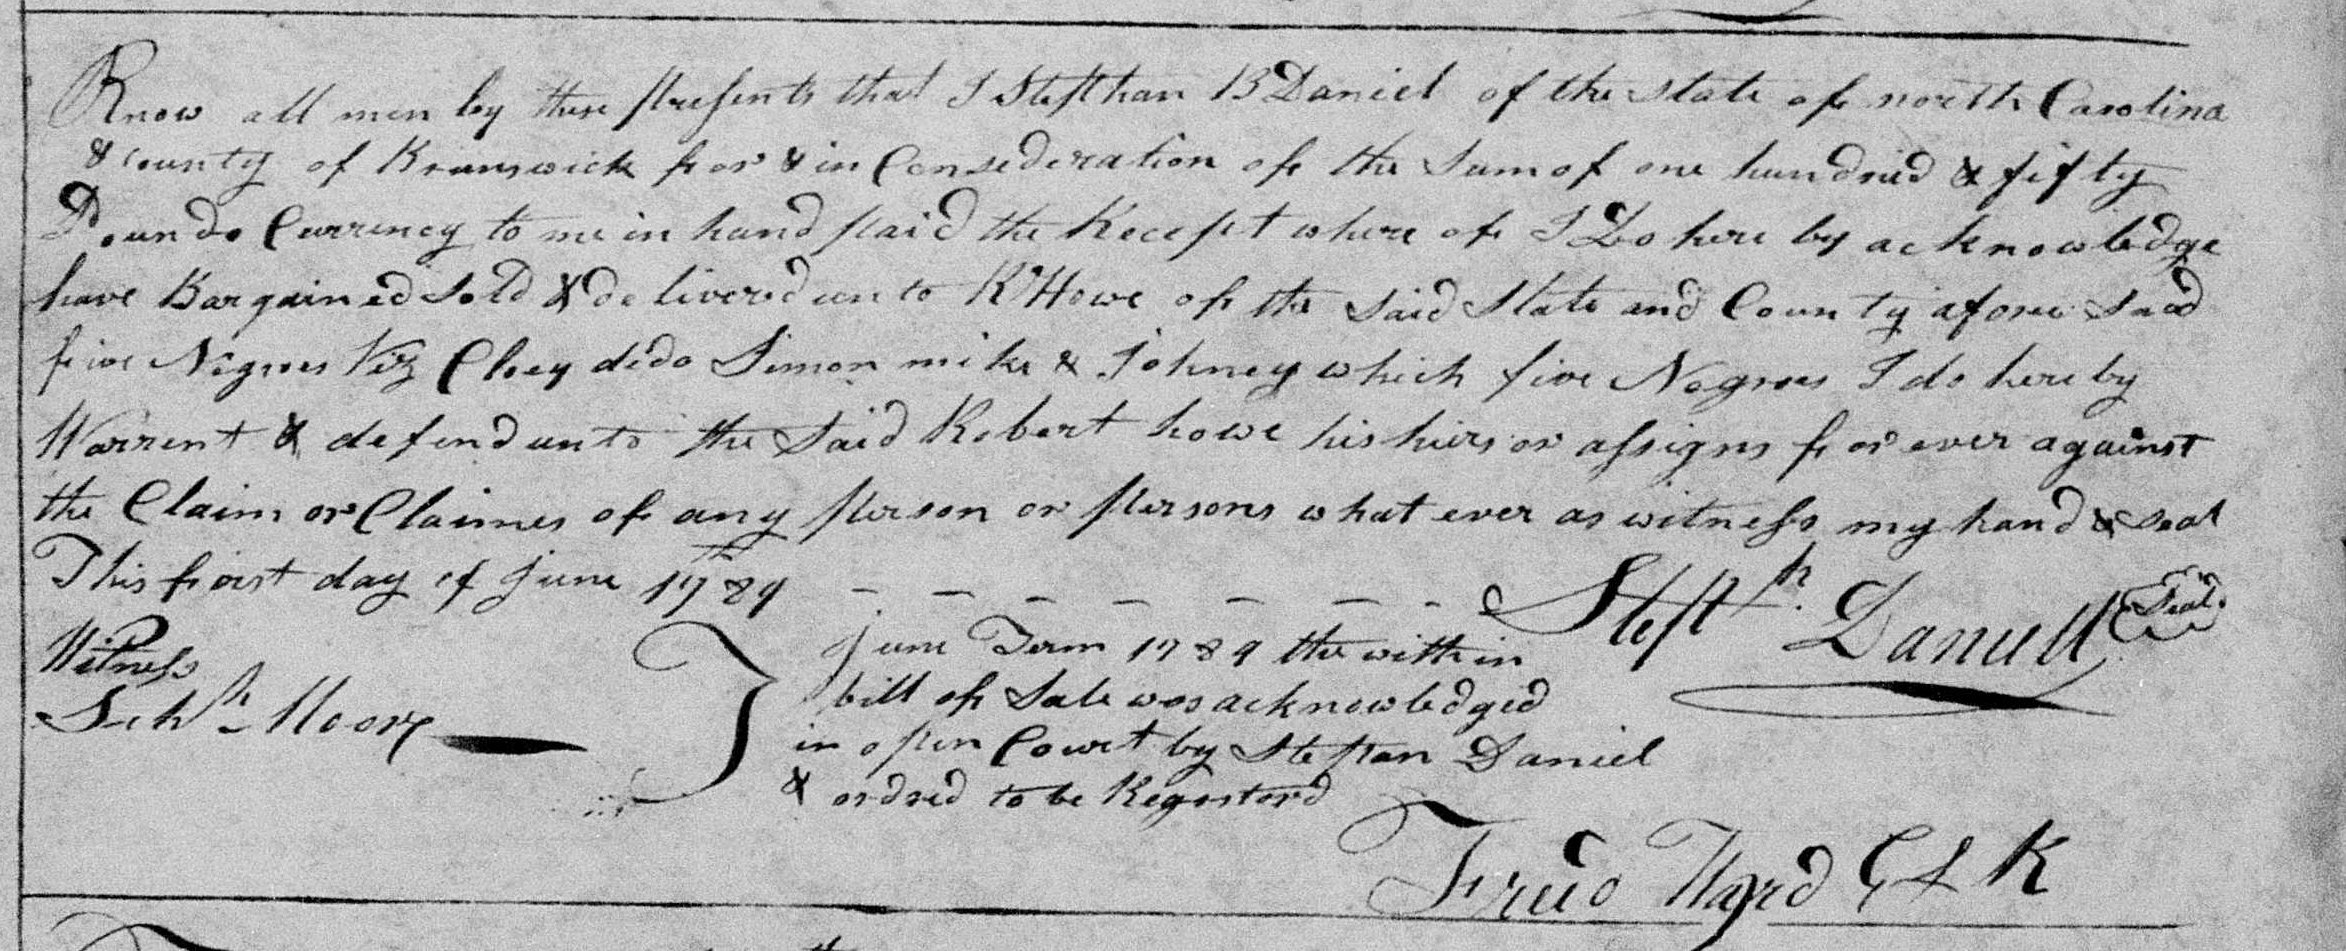 Know all men by these presents that I Stephan B Daniel of the State of north Carolina
& County of Brunswick for & in Consederation of the Sum of one hundred & fifty
Pounds Currency to me in hand paid the Recept where of I Do here by acknowledge
have Bargained Sold & delivered unto R Howe of the Said State and County afore Said
five Negroes Viz Cloey dido Simon mike & Johney which five Negroes I do here by
Warrent & defend unto the Said Robert howe his hiers or assigns for ever against
the Claim or Claimes of any person or persons what ever as witness my hand & seal
This first day of June 1789
Steph Daniell Seal
Witness
Moore
June Term 1789 the with in
bill of Sale was acknowledged
in open Court by Stepan Daniel
& ordred to be Regesterd
Fred Ward Clk